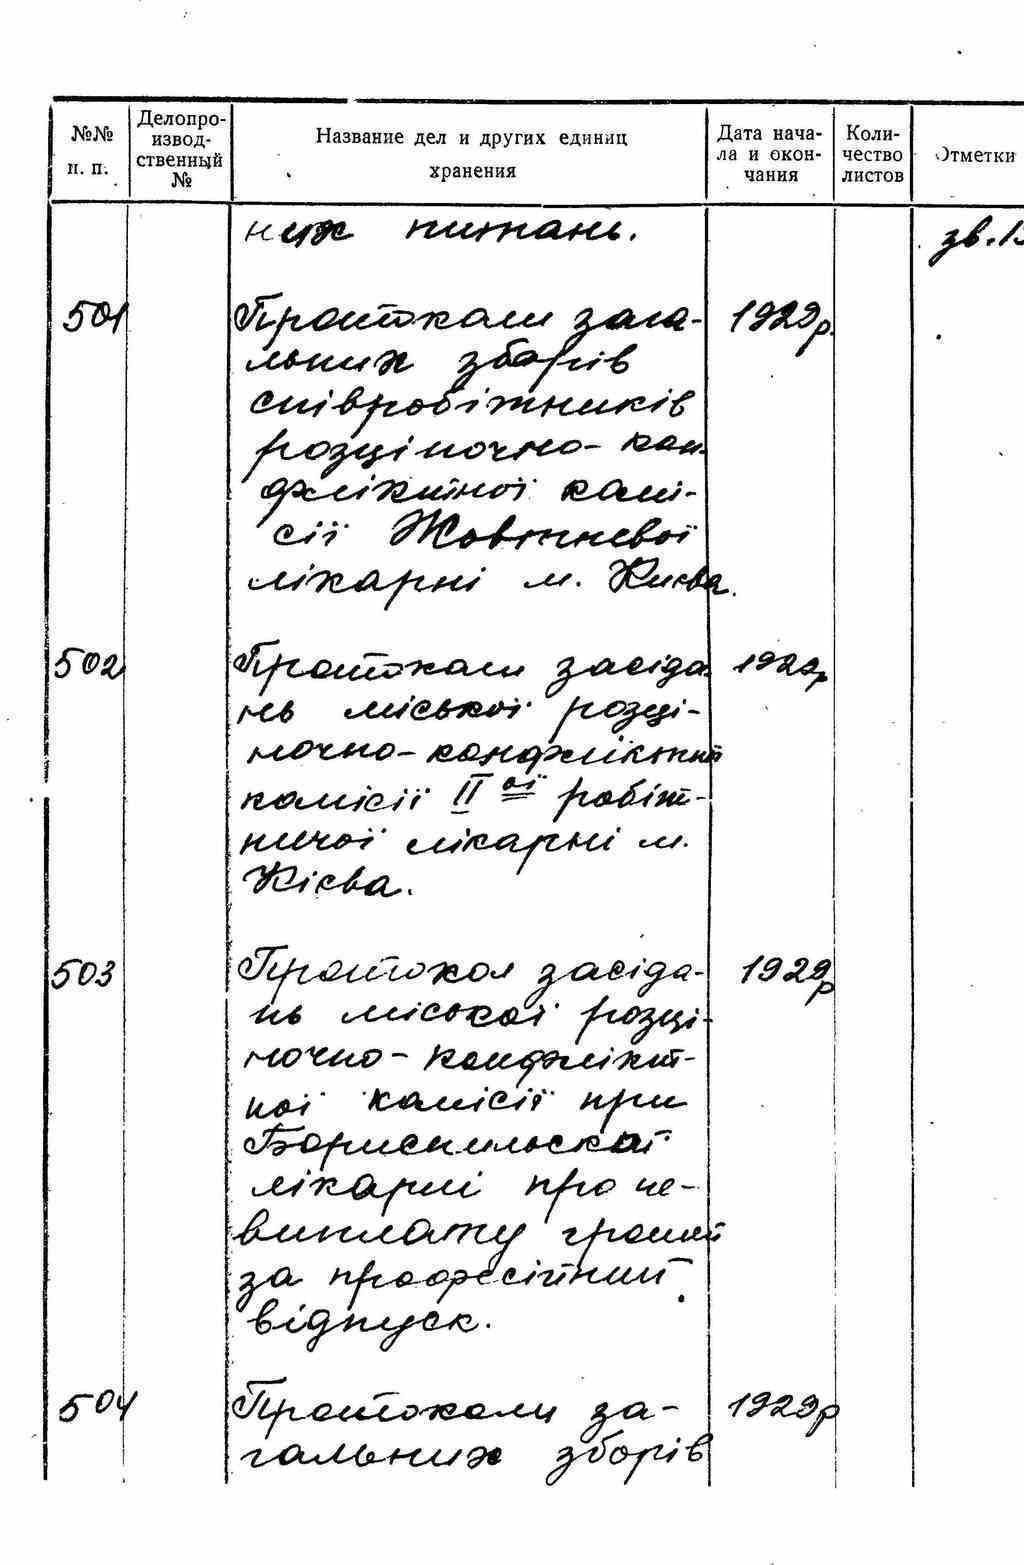 №№ н. п.
Делопроизводственный №
Название дел и других единиц хранения
Дата начала и окончания
Количество листов
Отметки
них питань.
зв.
501 Протоколи зага- 1929р.
льних зборів
співробітників
розціночно-кон-
фліктної комі-
сії Жовтневої
лікарні м. Києва.
502 Протоколи засіда- 1929р
нь міської розці-
ночно-конфліктної
комісії ІІої робіт-
ничої лікарні м.
Кієва.
503 Протокол засіда- 1929р
нь міської розці-
ночно-конфлікт-
ної комісії при
Бориспильскої
лікарні про не-
виплату грошей
за професійний
відпуск.
504 Протоколи за- 1929р
гальних зборів